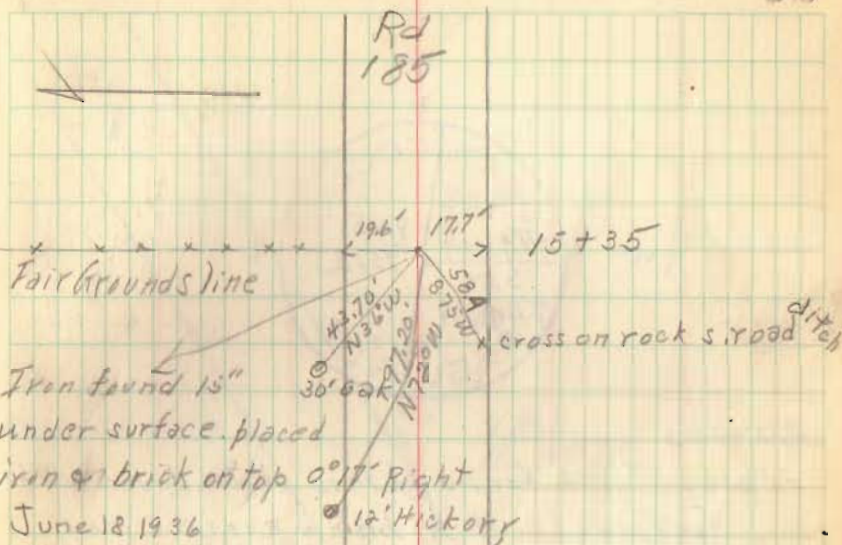 Rd
185
19.6' 17.7' 15+35
Fair Grounds line
43.70'
N36°W
97.20'
N72°W
58.4
S75W
cross on rock s. road ditch
Iron found 15"
30" oak
under surface. placed
iron & brick on top 0°17' Right
June 18 1936
12" Hickory